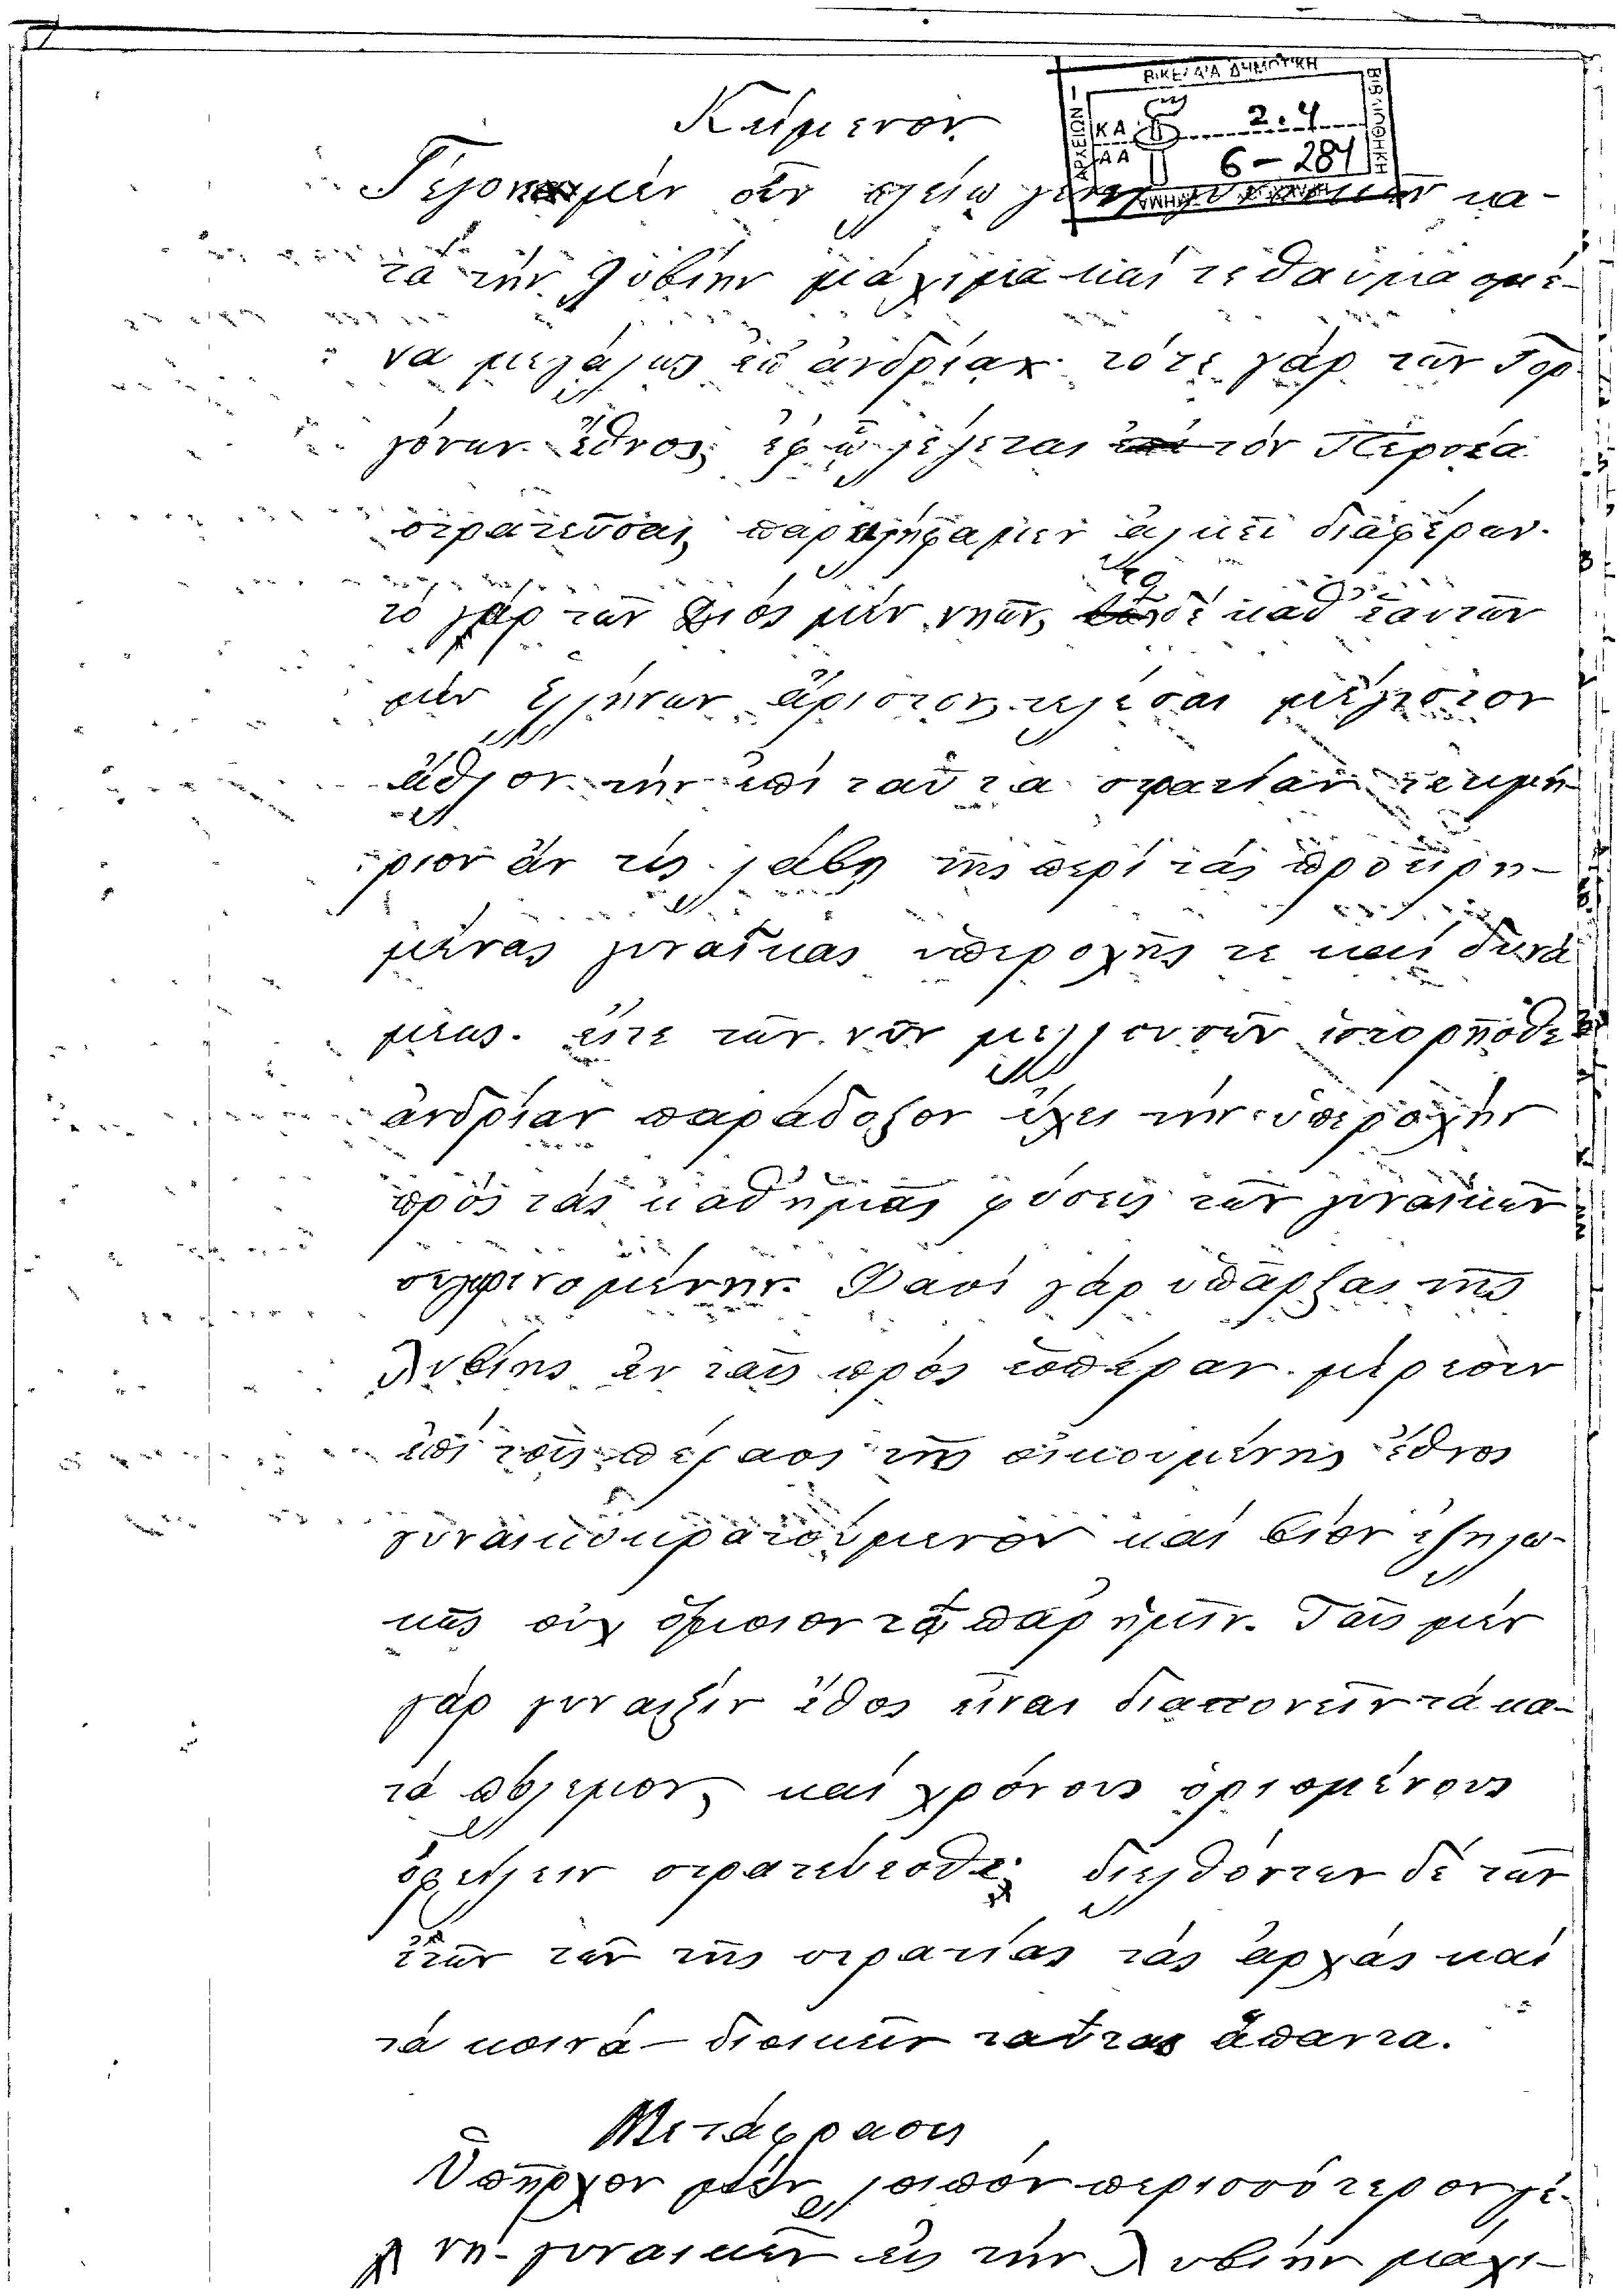 Κείμενον
ΒΙΚΕΛΑΙΑ ΔΗΜΟΤΙΚΗ
ΚΑ 2.4
ΑΑ 6-281
Γέγονε μέν οὖν πλείω γένη γυναικῶν κα-
τά τήν Λιβύην μάχιμα καί τεθαυμασμέ-
να μεγάλως ἐπ' ἀνδρίαν· τό τε γάρ τῶν Γορ-
γόνων ἔθνος, ἐφ' ὅ λέγεται τόν Περσέα
στρατεῦσαι, παρειλήφαμεν ἀλκεῖ διαφέρον.
τό γάρ τῶν Διός μέν υἱῶν, τῶν δέ καθ' ἑαυτῶν
μέν Ἑλλήνων ἄριστον, τελέσαι μέγιστον
ἆθλον τήν ἐπί ταύτα στρατείαν τεκμή-
ριον ἄν τις λάβη τῆς περί τάς προειρη-
μένας γυναῖκας ὑπεροχῆς τε καί δυνά-
μεως. εἴτε τῶν νῦν μελλουσῶν ἱστορῆσθαι
ἀνδρίαν παράδοξον ἔχει τήν ὑπεροχήν
πρός τάς καθ' ἡμᾶς φύσεις τῶν γυναικῶν
συγκρινομένην. Φασί γάρ ὑπάρξαι τῆς
Λιβύης ἐν τοῖς πρός ἑσπέραν μέρεσιν
ἐπί τοῦ πέρατος τῆς οἰκουμένης ἔθνος
γυναικοκρατούμενον καί βίον ἐζηλω-
κός οὐχ ὅμοιον τῷ παρ' ἡμῖν. Ταῖς μέν
γάρ γυναιξίν ἔθος εἶναι διαπονεῖν τά κα-
τά πόλεμον, καί χρόνους ὁρισμένους
ὀφείλειν στρατεύεσθαι, διελθόντων δέ τῶν
ἐτῶν τῶν τῆς στρατείας τάς ἀρχάς καί
τά κοινά διοικεῖν ταύτας ἅπαντα.
Μετάφρασις
Ὑπῆρχον μέν λοιπόν περισσότερον γέ-
νη γυναικῶν εἰς τήν Λιβύην μάχι-